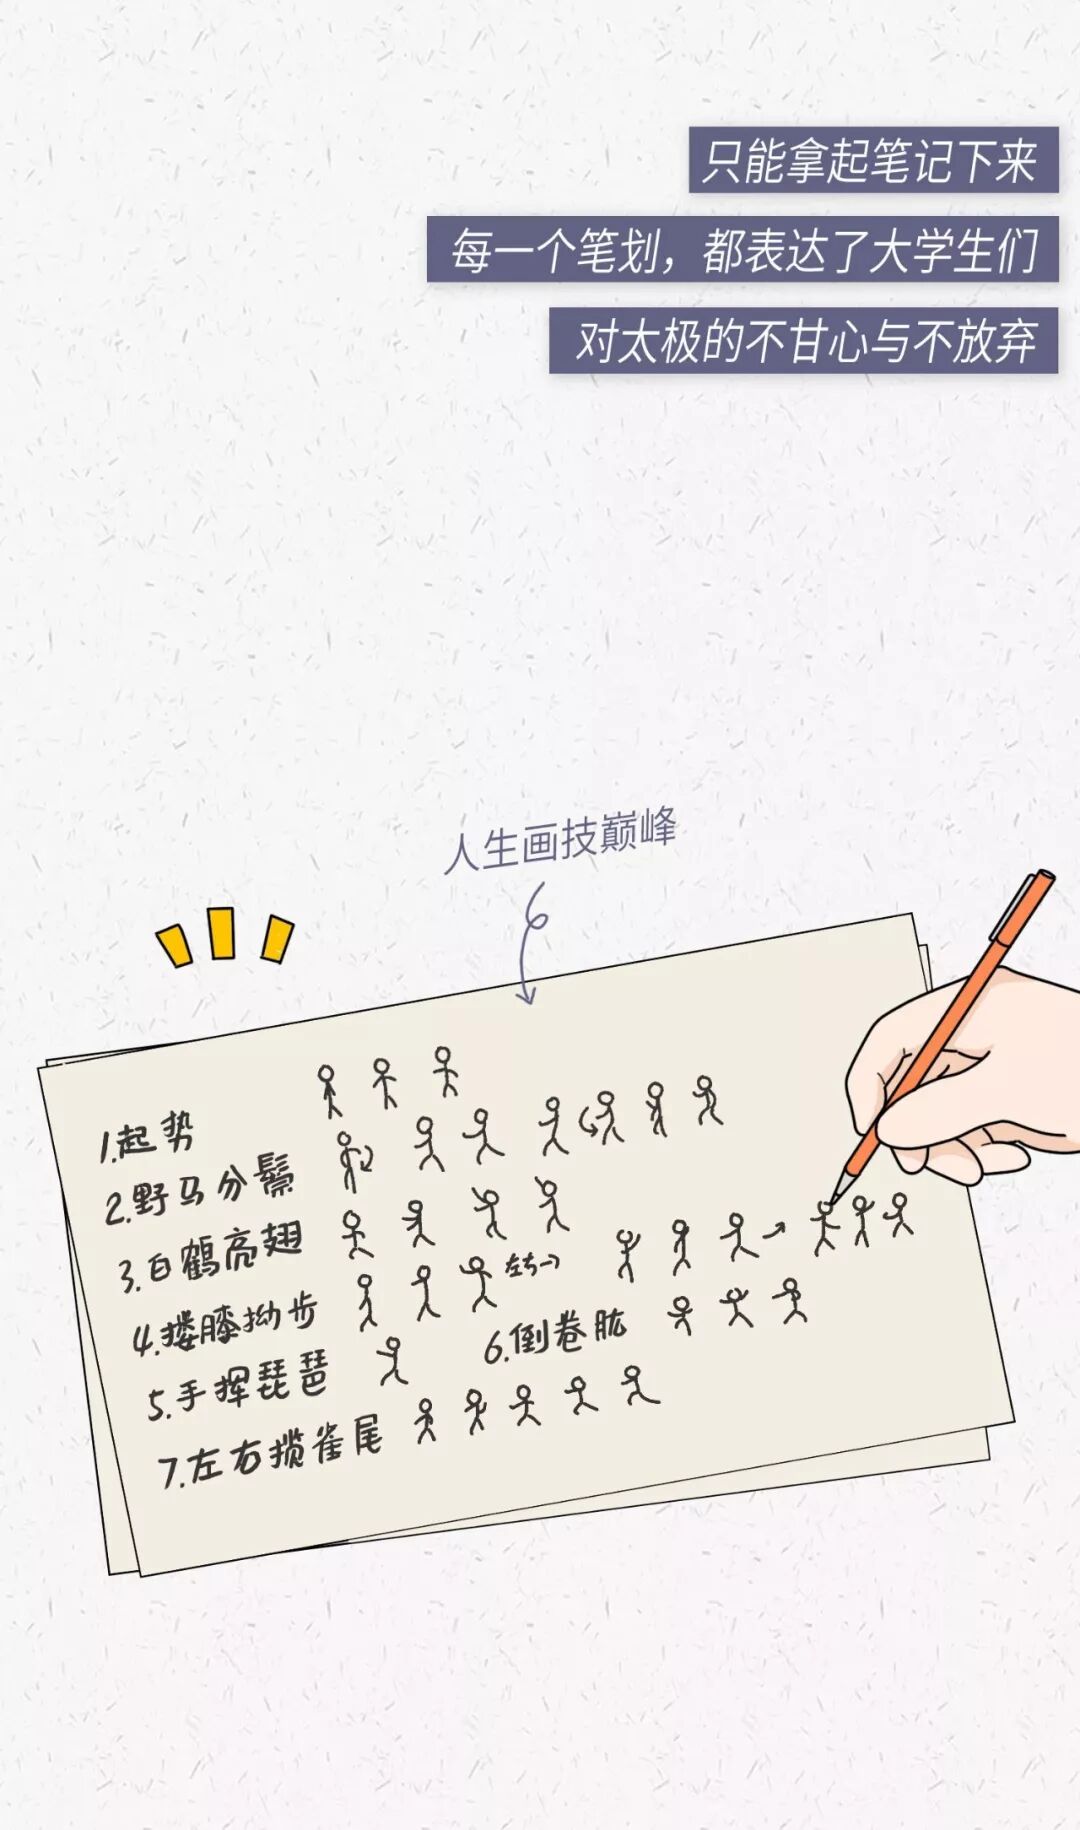 只能拿起笔记下来
每一个笔划，都表达了大学生们
对太极的不甘心与不放弃
人生画技巅峰
1.起势
2.野马分鬃
3.白鹤亮翅
4.搂膝拗步
5.手挥琵琶
6.倒卷肱
7.左右揽雀尾